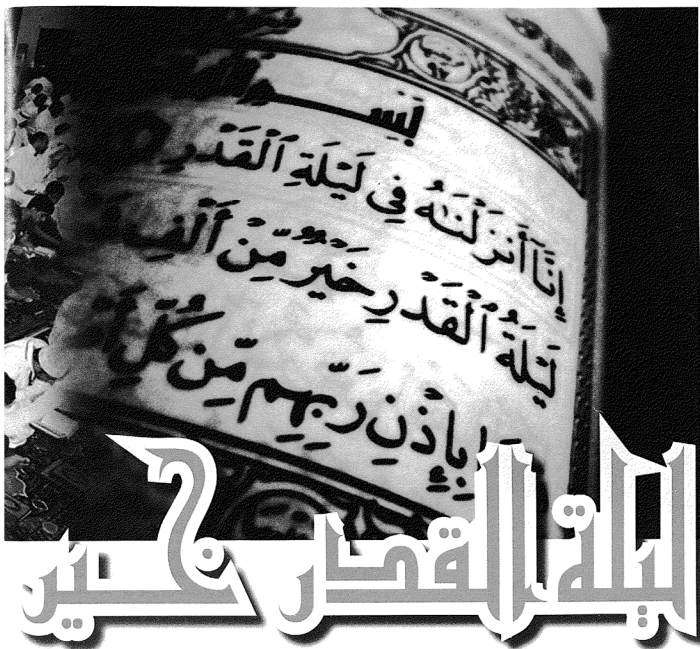 بِسْـ
إِنَّا أَنزَلْنَٰهُ فِى لَيْلَةِ ٱلْقَدْرِ
لَيْلَةُ ٱلْقَدْرِ خَيْرٌ مِّنْ أَلْفِ
بِإِذْنِ رَبِّهِم مِّن كُلِّ
ليلة القدر خير